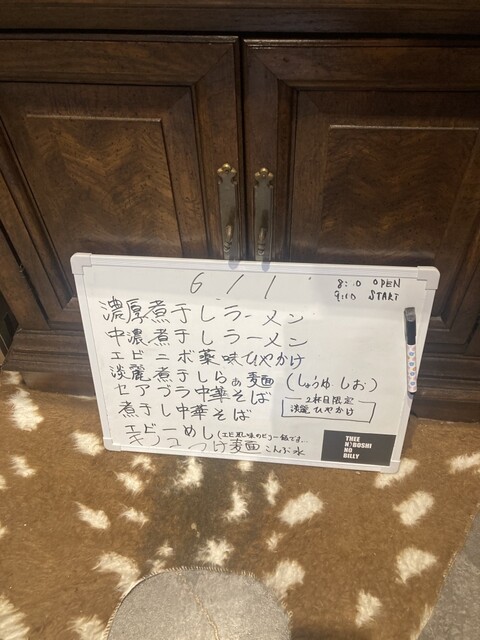 6/1
8:00 OPEN
9:00 START
濃厚煮干しラーメン
中濃煮干しラーメン
エビニボ薬味ひやかけ
淡麗煮干しらぁ麺 (しょうゆ しお)
セアブラ中華そば
2杯目限定
淡麗ひやかけ
煮干し中華そば
エビーめし (エビ
つけ麺 こんぶ水
THEE
NIBOSHI
NO
BILLY